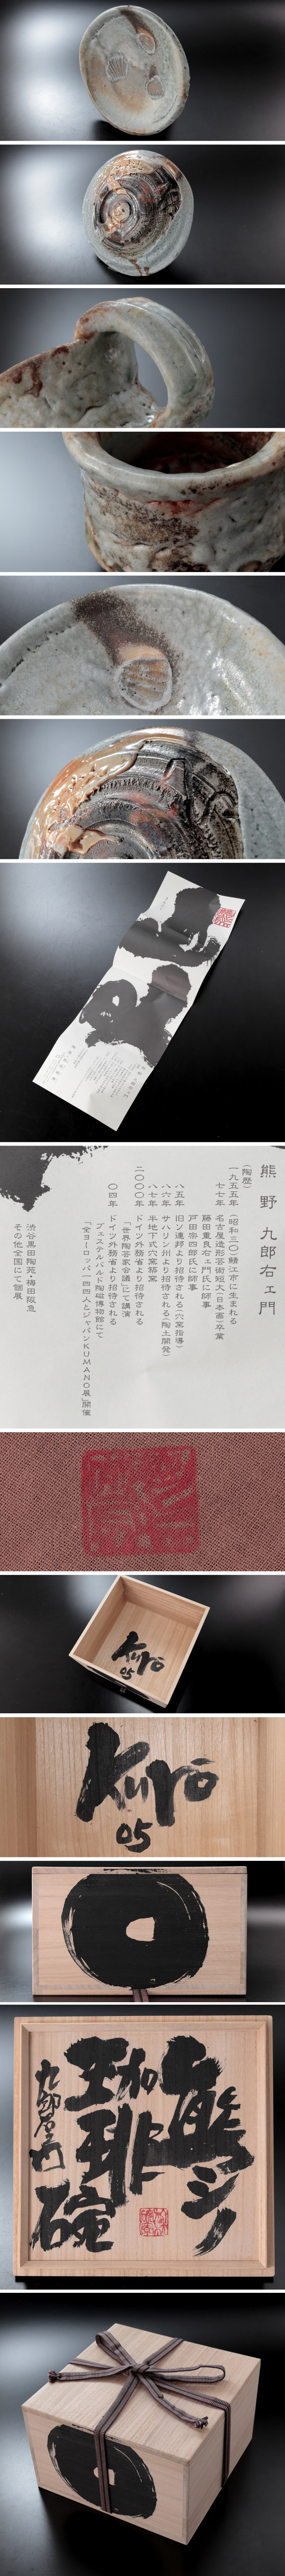 熊野九郎右ェ門
(陶歴)
一九五五年(昭和三〇)鯖江市に生まれる
七七年 名古屋造形芸術短大(日本画)卒業
藤田重良右ェ門氏に師事
戸田宗四郎氏に師事
八五年 旧ソ連邦より招待される(穴窯指導)
八六年 サハリン州より招待される(陶土開発)
八七年 半地下式穴窯築窯
二〇〇〇年 ドイツ外務省より招待される
「世界陶芸家会議」にて講演
〇四年 ドイツ外務省より招待される
フェステルバルド陶磁博物館にて
「全ヨーロッパ一四四人とジャパンKUMANO展」開催
渋谷黒田陶苑・梅田阪急
その他全国にて個展
Kuro
05
熊シノ
珈琲碗
九郎右ェ門